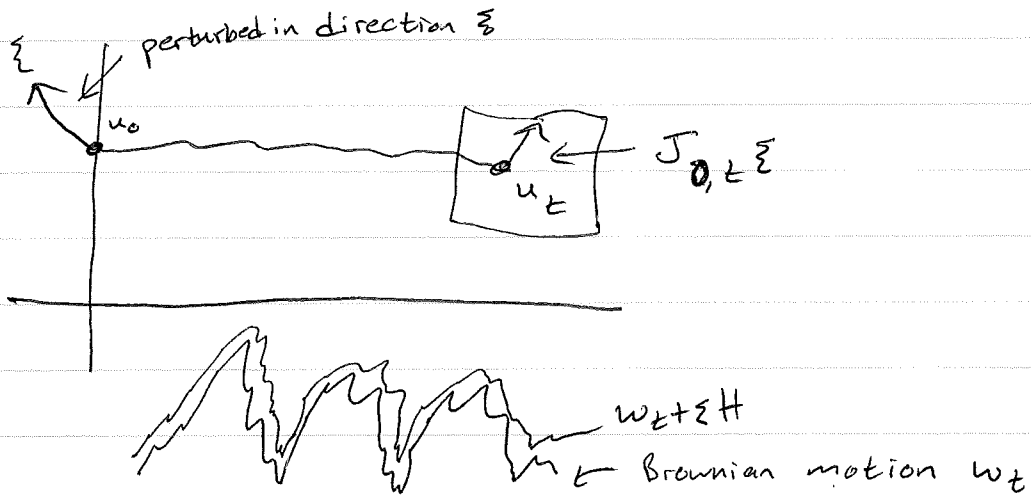 perturbed in direction ξ
ξ
u₀
J₀,ₜ ξ
uₜ
wₜ + εH
Brownian motion wₜ